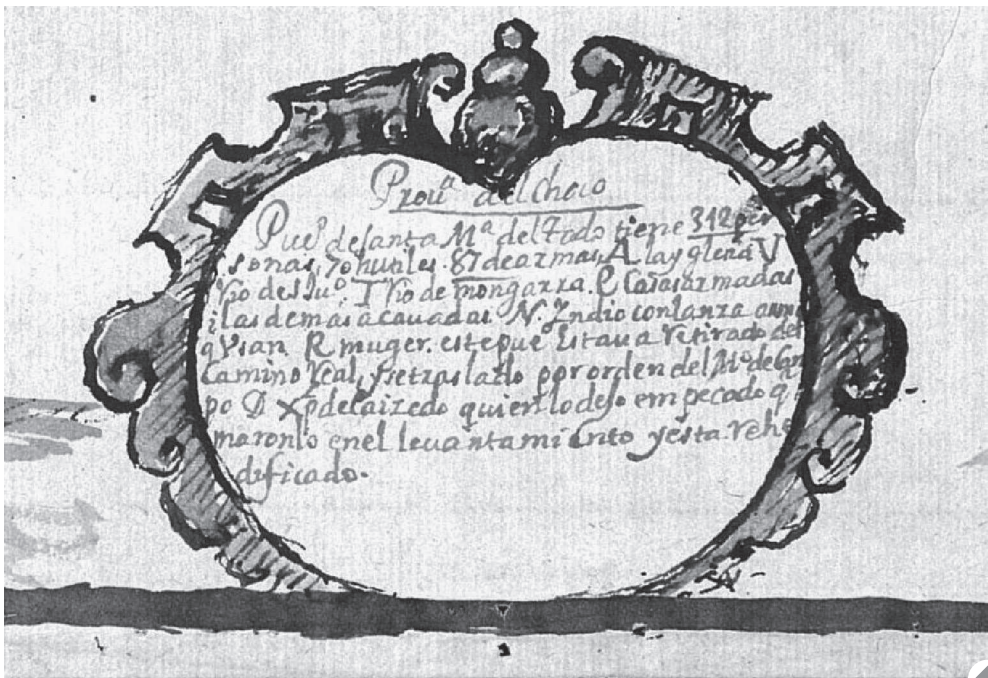 Prouª del Choco
Pueº de santa Mª del Tado tiene 312 per
sonas, 70 hutiles. 87 de armas, A la yglesia V
Rio de sⁿ Juº. T Rio de mongarra. P Casas armadas
i las demas acauadas. N. Yndio con lanza
q Vsan R muger. este pueº Estaua retirado del
Camino Real, y se traslado por orden del Mº de Cⁿ
po D Xpl de Caizedo quien lo dejo empecado q
maronlo en el leuantamiento y esta rehe
dificado.